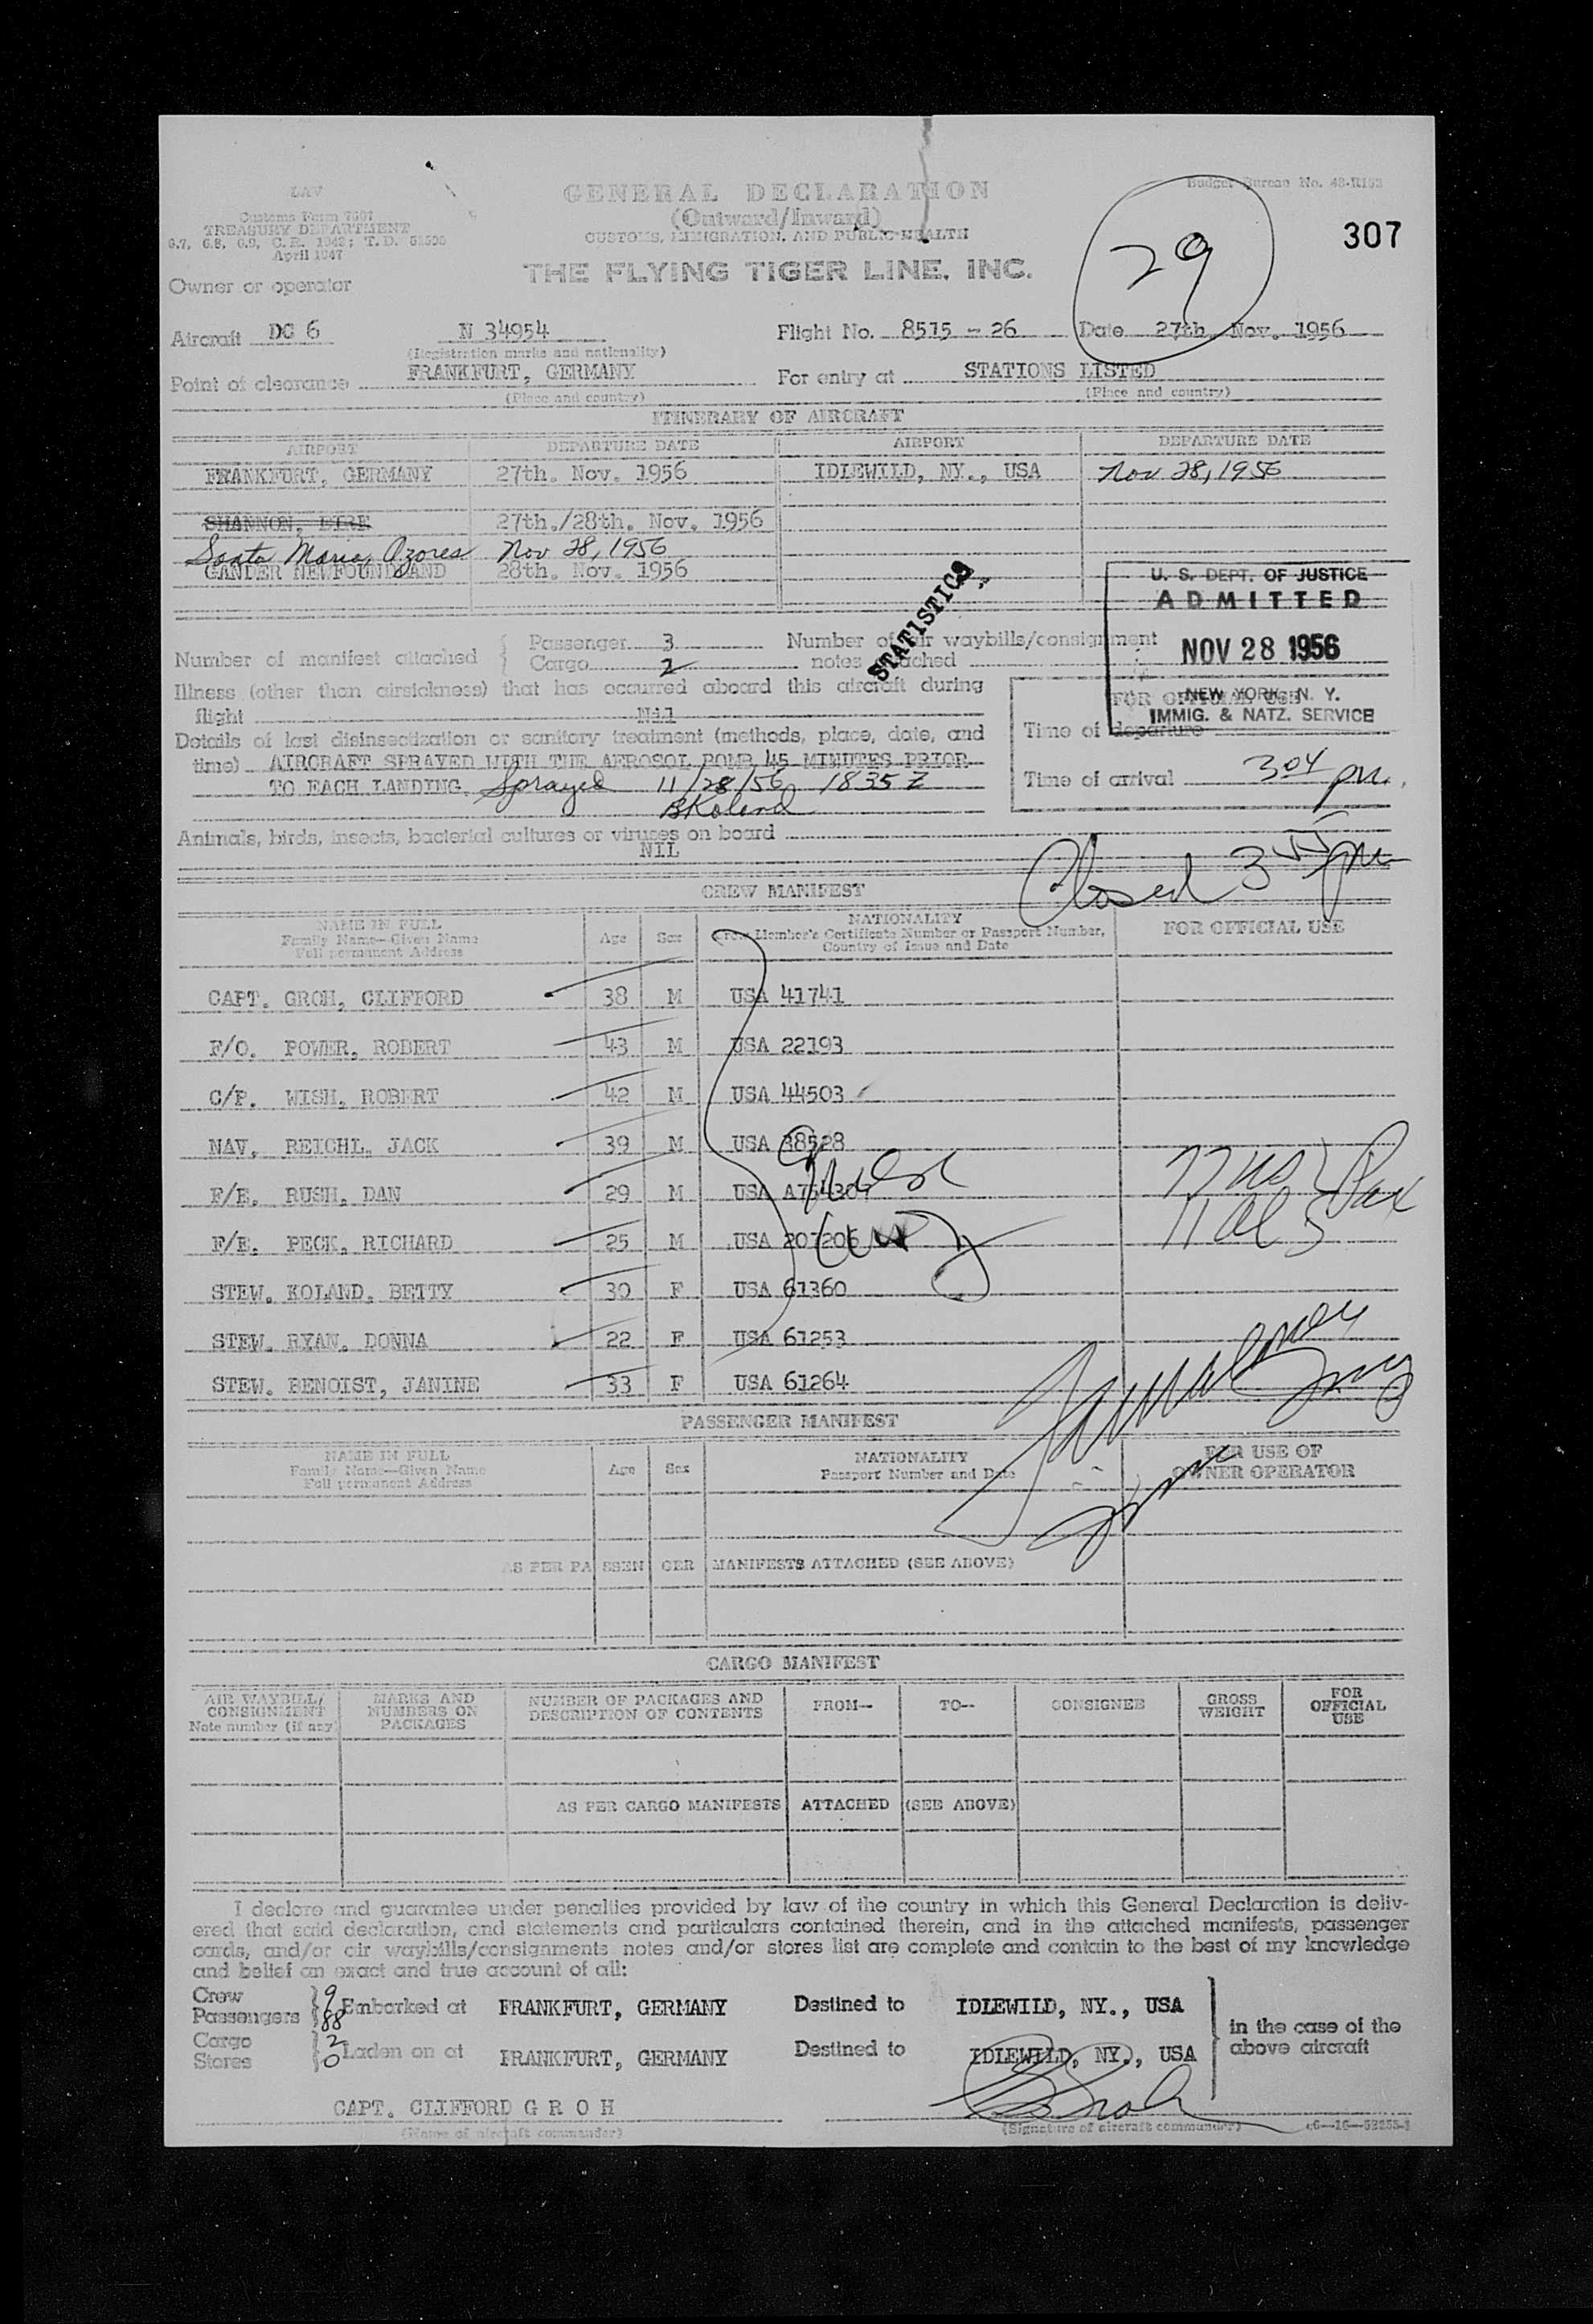 LAV
Customs Form 7507
TREASURY DEPARTMENT
6.7, 6.8, 6.9, C.R. 1943; T.D.
April 1947
GENERAL DECLARATION
(Outward/Inward)
CUSTOMS, IMMIGRATION, AND PUBLIC HEALTH
THE FLYING TIGER LINE, INC.
Budget Bureau No.
29
307
Owner or operator
Aircraft DC 6 N 34954 Flight No. 8515 - 26 Date 27th. Nov. 1956
(Registration marks and nationality)
Point of clearance FRANKFURT, GERMANY For entry at STATIONS LISTED
(Place and country) (Place and country)
ITINERARY OF AIRCRAFT
AIRPORT DEPARTURE DATE AIRPORT DEPARTURE DATE
FRANKFURT, GERMANY 27th. Nov. 1956 IDLEWILD, NY., USA Nov 28, 1956
SHANNON, EIRE 27th./28th. Nov. 1956
Santa Maria, Azores Nov 28, 1956
GANDER NEWFOUNDLAND 28th. Nov. 1956
STATISTICS
U. S. DEPT. OF JUSTICE
ADMITTED
NOV 28 1956
NEW YORK, N. Y.
IMMIG. & NATZ. SERVICE
Number of manifest attached { Passenger 3 Number of air waybills/consignment
Cargo 2 notes attached
Illness (other than airsickness) that has occurred aboard this aircraft during
flight Nil
FOR OFFICIAL USE
Details of last disinsectization or sanitory treatment (methods, place, date, and
time) AIRCRAFT SPRAYED WITH THE AEROSOL BOMB 45 MINUTES PRIOR
TO EACH LANDING. Sprayed 11/28/56 1835 Z
BKoland
Time of departure
Time of arrival 304 pm.
Animals, birds, insects, bacterial cultures or viruses on board
NIL
Closed 3 pm
CREW MANIFEST
NAME IN FULL
Family Name--Given Name
Full permanent Address
Age Sex
NATIONALITY
Crew Member's Certificate Number or Passport Number,
Country of Issue and Date
FOR OFFICIAL USE
CAPT. GROH, CLIFFORD 38 M USA 41741
F/O. POWER, ROBERT 43 M USA 22193
C/P. WISH, ROBERT 42 M USA 44503
NAV. REICHL, JACK 39 M USA 38528
F/E. RUSH, DAN 29 M USA
F/E. PECK, RICHARD 25 M USA 207206
STEW. KOLAND, BETTY 30 F USA 61360
STEW. RYAN, DONNA 22 F USA 61253
STEW. BENOIST, JANINE 33 F USA 61264
77 Pax
PASSENGER MANIFEST
NAME IN FULL
Family Name--Given Name
Full permanent Address
Age Sex
NATIONALITY
Passport Number and Date
FOR USE OF
OWNER OPERATOR
AS PER PASSENGER MANIFESTS ATTACHED (SEE ABOVE)
CARGO MANIFEST
AIR WAYBILL/
CONSIGNMENT
Note number (if any)
MARKS AND
NUMBERS ON
PACKAGES
NUMBER OF PACKAGES AND
DESCRIPTION OF CONTENTS
FROM-- TO-- CONSIGNEE
GROSS
WEIGHT
FOR
OFFICIAL
USE
AS PER CARGO MANIFESTS ATTACHED (SEE ABOVE)
I declare and guarantee under penalties provided by law of the country in which this General Declaration is deliv-
ered that said declaration, and statements and particulars contained therein, and in the attached manifests, passenger
cards, and/or air waybills/consignments notes and/or stores list are complete and contain to the best of my knowledge
and belief an exact and true account of all:
Crew 9
Passengers 88 Embarked at FRANKFURT, GERMANY Destined to IDLEWILD, NY., USA
Cargo 2
Stores 0 Laden on at FRANKFURT, GERMANY Destined to IDLEWILD, NY., USA
in the case of the
above aircraft
CAPT. CLIFFORD G R O H
(Name of aircraft commander) (Signature of aircraft commander)